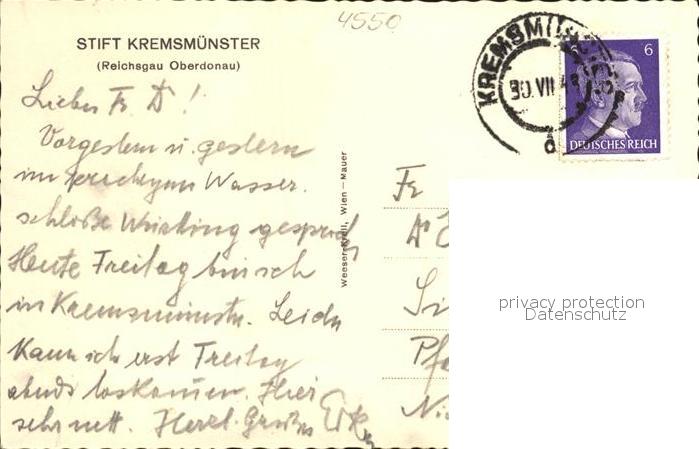 4550
STIFT KREMSMÜNSTER
(Reichsgau Oberdonau)
KREMSMÜNS
30.VII.4
6
6
DEUTSCHES REICH
Lieber Fr. D!
Vorgestern u. gestern
im Wasser.
gesproch
Heute Freitag bin ich
in Kremsmünster. Leider
kann ich erst Freitag
abends loskommen. Hier
sehr nett. Herzl. Grüße
Weeser-Krell, Wien – Mauer
Fr
Si
Pfa
privacy protection
Datenschutz